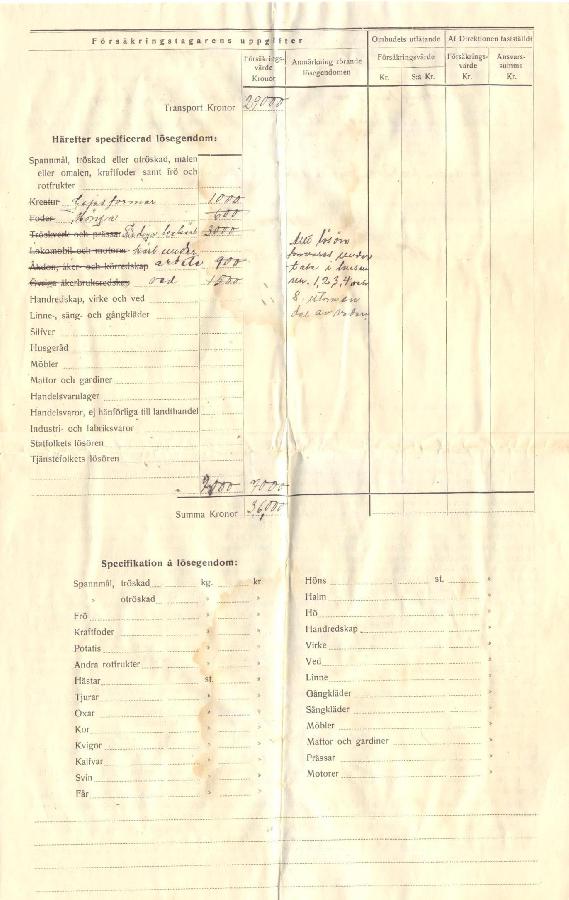 Försäkringstagarens uppgifter
Ombudets utlåtande
Af Direktionen fastställdt
Försäkrings-värde Kronor
Anmärkning rörande lösegendomen
Försäkringsvärde
Kr.
Sta Kr.
Försäkrings-värde Kr.
Ansvars-summa Kr.
Transport Kronor 29000
Härefter specificerad lösegendom:
Spannmål, tröskad eller otröskad, malen
eller omalen, kraftfoder samt frö och
rotfrukter
Kreatur Gipsformar 1000
Foder 600
Tröskverk och prässar 3000
Lokomobil och motorer under
Åkdon, åker- och körredskap arbete 900
Öfriga åkerbruksredskap ved 1500
Handredskap, virke och ved
Linne-, säng- och gångkläder
Silfver
Husgeråd
Möbler
Mattor och gardiner
Handelsvarulager
Handelsvaror, ej hänförliga till landthandel
Industri- och fabriksvaror
Statfolkets lösören
Tjänstefolkets lösören
Att lösön
förvaras under
tak i husen
nr. 1, 2, 3, 4 och
8 utom en
del av veden
7000 7000
Summa Kronor 36,000
Specifikation å lösegendom:
Spannmål, tröskad kg. kr
» otröskad » »
Frö » »
Kraftfoder » »
Potatis » »
Andra rotfrukter » »
Hästar st. »
Tjurar » »
Oxar » »
Kor » »
Kvigor » »
Kalfvar » »
Svin » »
Får » »
Höns st. »
Halm »
Hö »
Handredskap »
Virke »
Ved »
Linne »
Gångkläder »
Sängkläder »
Möbler »
Mattor och gardiner »
Prässar »
Motorer »